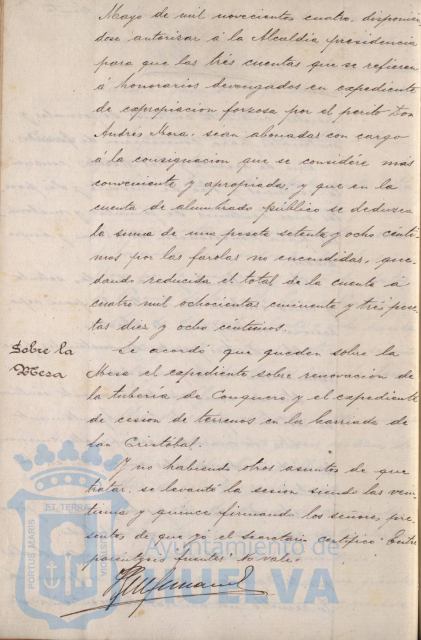 Mayo de mil novecientos cuatro, disponien
dose autorizar á la Alcaldia presidencia
para que las tres cuentas que se refieren
á honorarios devengados en expediente
de expropiacion forzosa por el perito Don
Andrés Mora, sean abonadas con cargo
á la consignacion que se considére más
conveniente y apropiada, y que en la
cuenta de alumbrado público se deduzca
la suma de una peseta setenta y ocho centi
mos por las farolas no encendidas, que-
dando reducida el total de la cuenta á
cuatro mil ochocientas cincuenta y tres pese
tas diez y ocho centimos.
Sobre la
Mesa
Se acordó que queden sobre la
Mesa el expediente sobre renovacion de
la tuberia de Conquero y el expediente
de cesion de terrenos en la barriada de
San Cristóbal.
Y no habiendo otros asuntos de que
tratar, se levantó la sesion siendo las vein
tiuna y quince firmando los señores pre
sentes de que yo el secretario certifico. Entre
parentesis vale.
PORTUS MARIS
ET TERRE
Ayuntamiento de
HUELVA